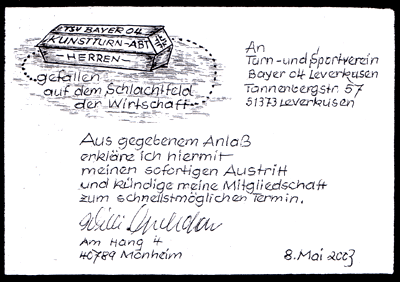 TSV BAYER 04
KUNSTTURN-ABT
HERREN-
gefallen
auf dem Schlachtfeld
der Wirtschaft
An
Turn-und Sportverein
Bayer 04 Leverkusen
Tannenbergstr. 57
51373 Leverkusen
Aus gegebenem Anlaß
erkläre ich hiermit
meinen sofortigen Austritt
und kündige meine Mitgliedschaft
zum schnellstmöglichen Termin.
Am Hang 4
40789 Monheim
8. Mai 2003